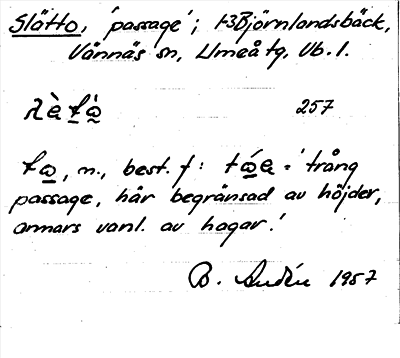 Slätto, 'passage'; t3Björnlandsbäck,
Vännäs sn, Umeå tg, Vb. l.
257
, n., best. f: = 'trång
passage, här begränsad av höjder,
annars vanl. av hagar.'
B. 1957